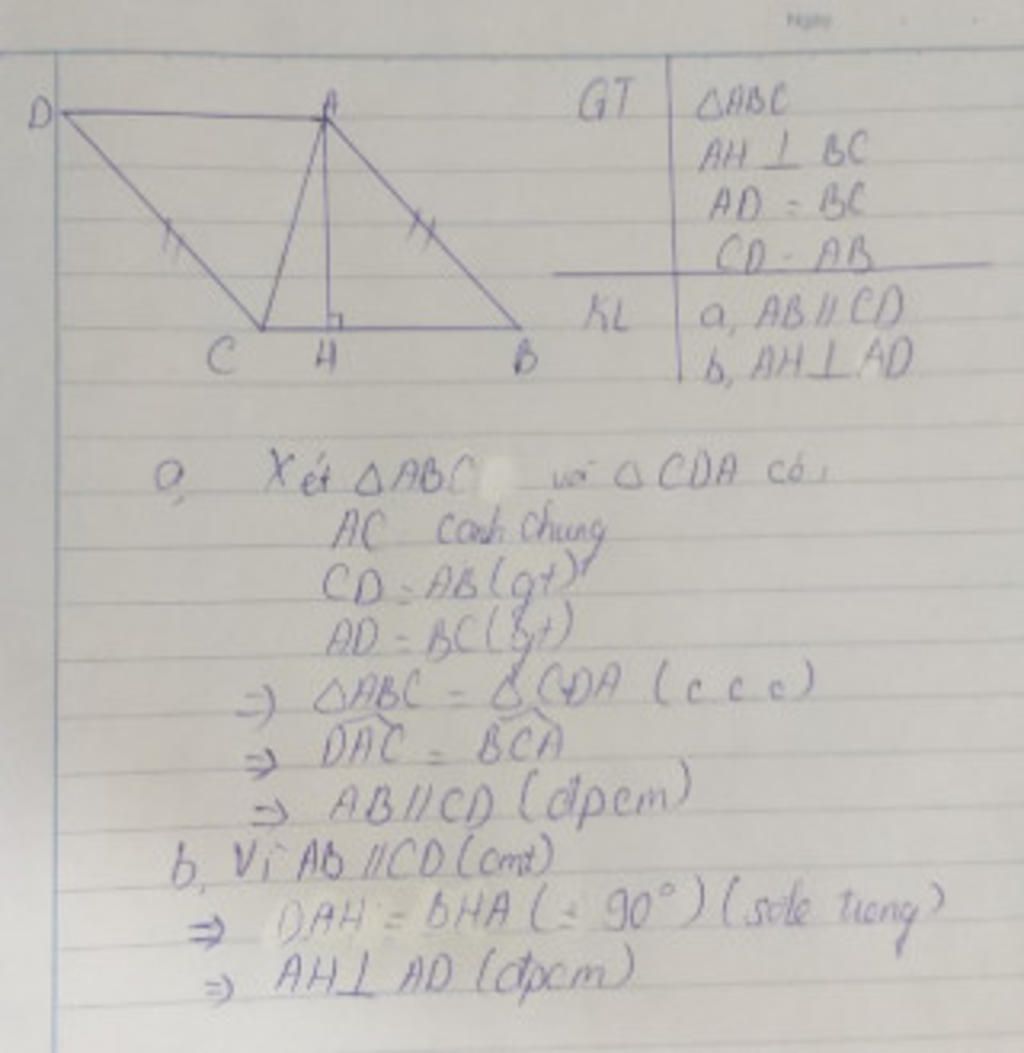 Ngày
D A
C H B
GT ΔABC
AH ⊥ BC
AD = BC
CD = AB
KL a, AB // CD
b, AH ⊥ AD
a, Xét ΔABC và ΔCDA có:
AC cạnh chung
CD = AB (gt)
AD = BC (gt)
=> ΔABC = ΔCDA (c c c)
=> DAC = BCA
=> AB // CD (đpcm)
b, Vì AB // CD (cmt)
=> DAH = BHA (= 90°) (sole trong)
=> AH ⊥ AD (đpcm)